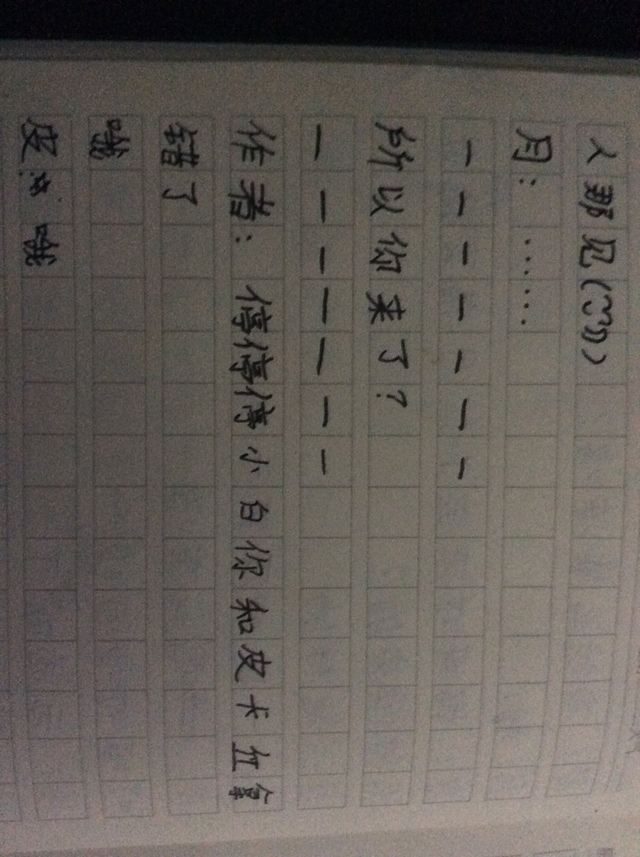 人那见
月：……
———————
所以你来了？
———————
作者：停停停小白你和皮卡丘拿
错了
哦
皮 哦